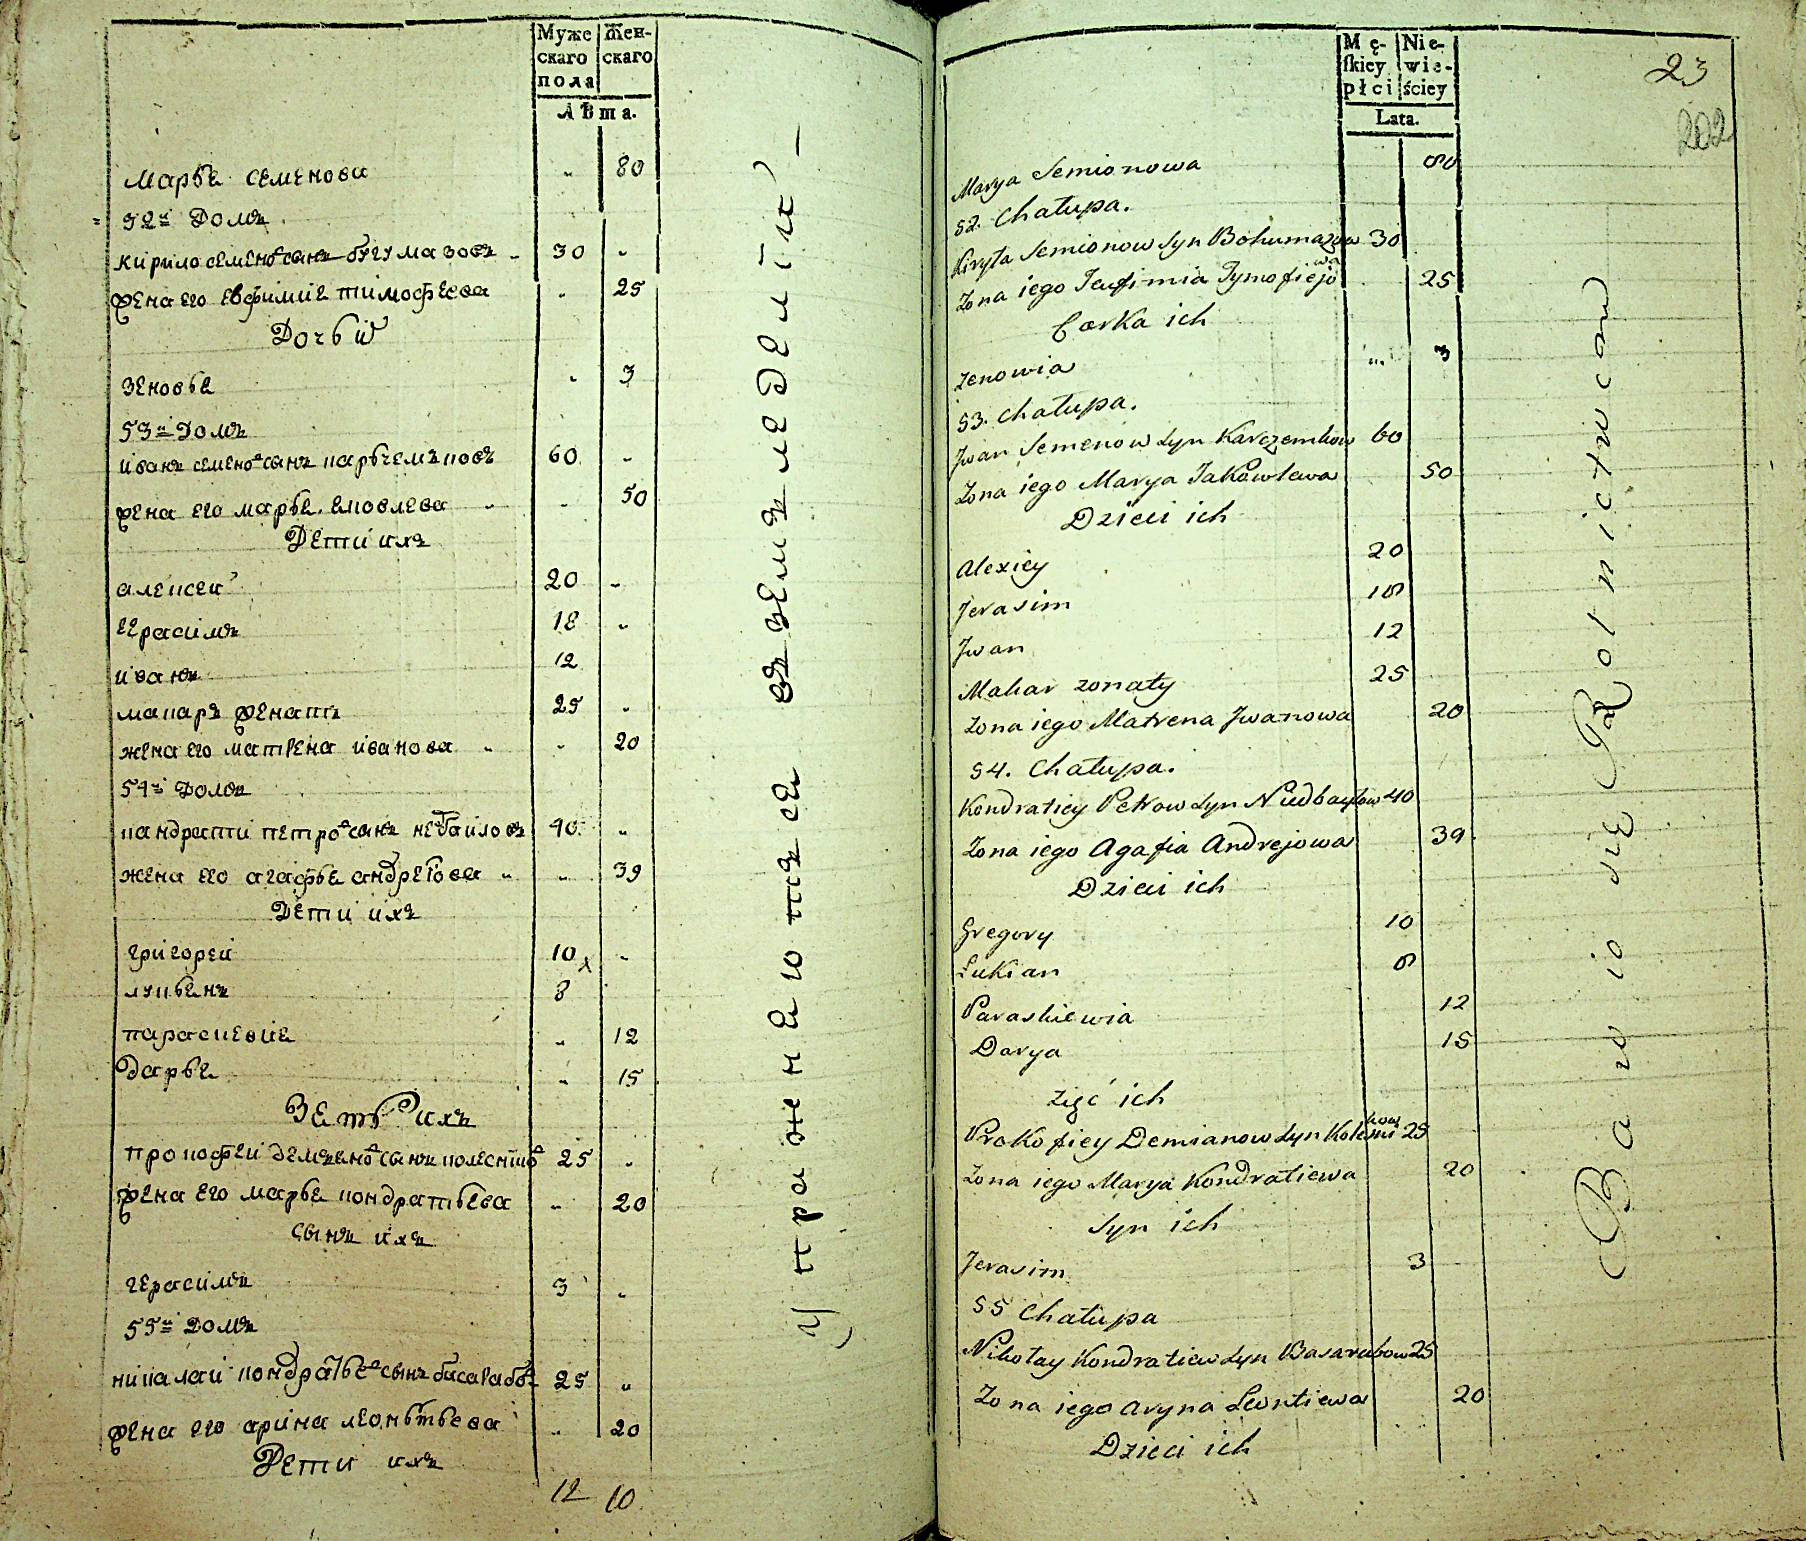 Муже скаго пола
Женскаго
Лѣта.
марья семенова „ 80
52й Домъ
кирило семеновъ сынъ богумазовъ 30 „
жена его евфимия тимофеева „ 25
Дочь их
зеновья „ 3
53й Домъ
иванъ семеновъ сынъ карьчемъковъ 60 „
жена его марья яковлева „ 50
Дети ихъ
алексеи 20 „
герасимъ 18 „
иванъ 12
макаръ женатъ 25 „
жена его матрена иванова „ 20
54й Домъ
кандрати петровъ сынъ небайловъ 40 „
жена его агафья андреева „ 39
Дети ихъ
григореи 10 „
лукьянъ 8
парасковия „ 12
дарья „ 15
Зеть ихъ
прокофеи демяновъ сынъ 25 „
жена его марья кондратьева „ 20
сынъ ихъ
герасимъ 3 „
55й Домъ
николаи кондратьевъ сынъ басарабовъ 25 „
жена его арина леонтьева „ 20
Дети ихъ
12 10
упражняются въ земледелии
Męskiey płci
Niewieściey
Lata.
23
202
Marya Semionowa 80
52. Chałupa.
Kiryła Semionow Syn Bohumazow 30
Żona iego Jeufimia Tymofiejowa 25
Corka ich
Zenowia „ 3
53. Chałupa.
Jwan Semenow Syn Karczemkow 60
Żona iego Marya Jakowlewa 50
Dzieci ich
Alexiey 20
Jerasim 18
Jwan 12
Makar żonaty 25
Żona iego Matrena Jwanowa 20
54. Chałupa.
Kondratiey Petrow Syn Niedbayłow 40
Żona iego Agafia Andrejowa 39
Dzieci ich
Gregory 10
Łukian 8
Paraskiewia 12
Darya 15
Zięć ich
Prokofiey Demianow Syn 25
Żona iego Marya Kondratiewa 20
Syn ich
Jerasim 3
55 Chałupa
Nikołay Kondratiew Syn Basarabow 25
Żona iego Aryna Leontiewa 20
Dzieci ich
Bawio się Rolnictwem